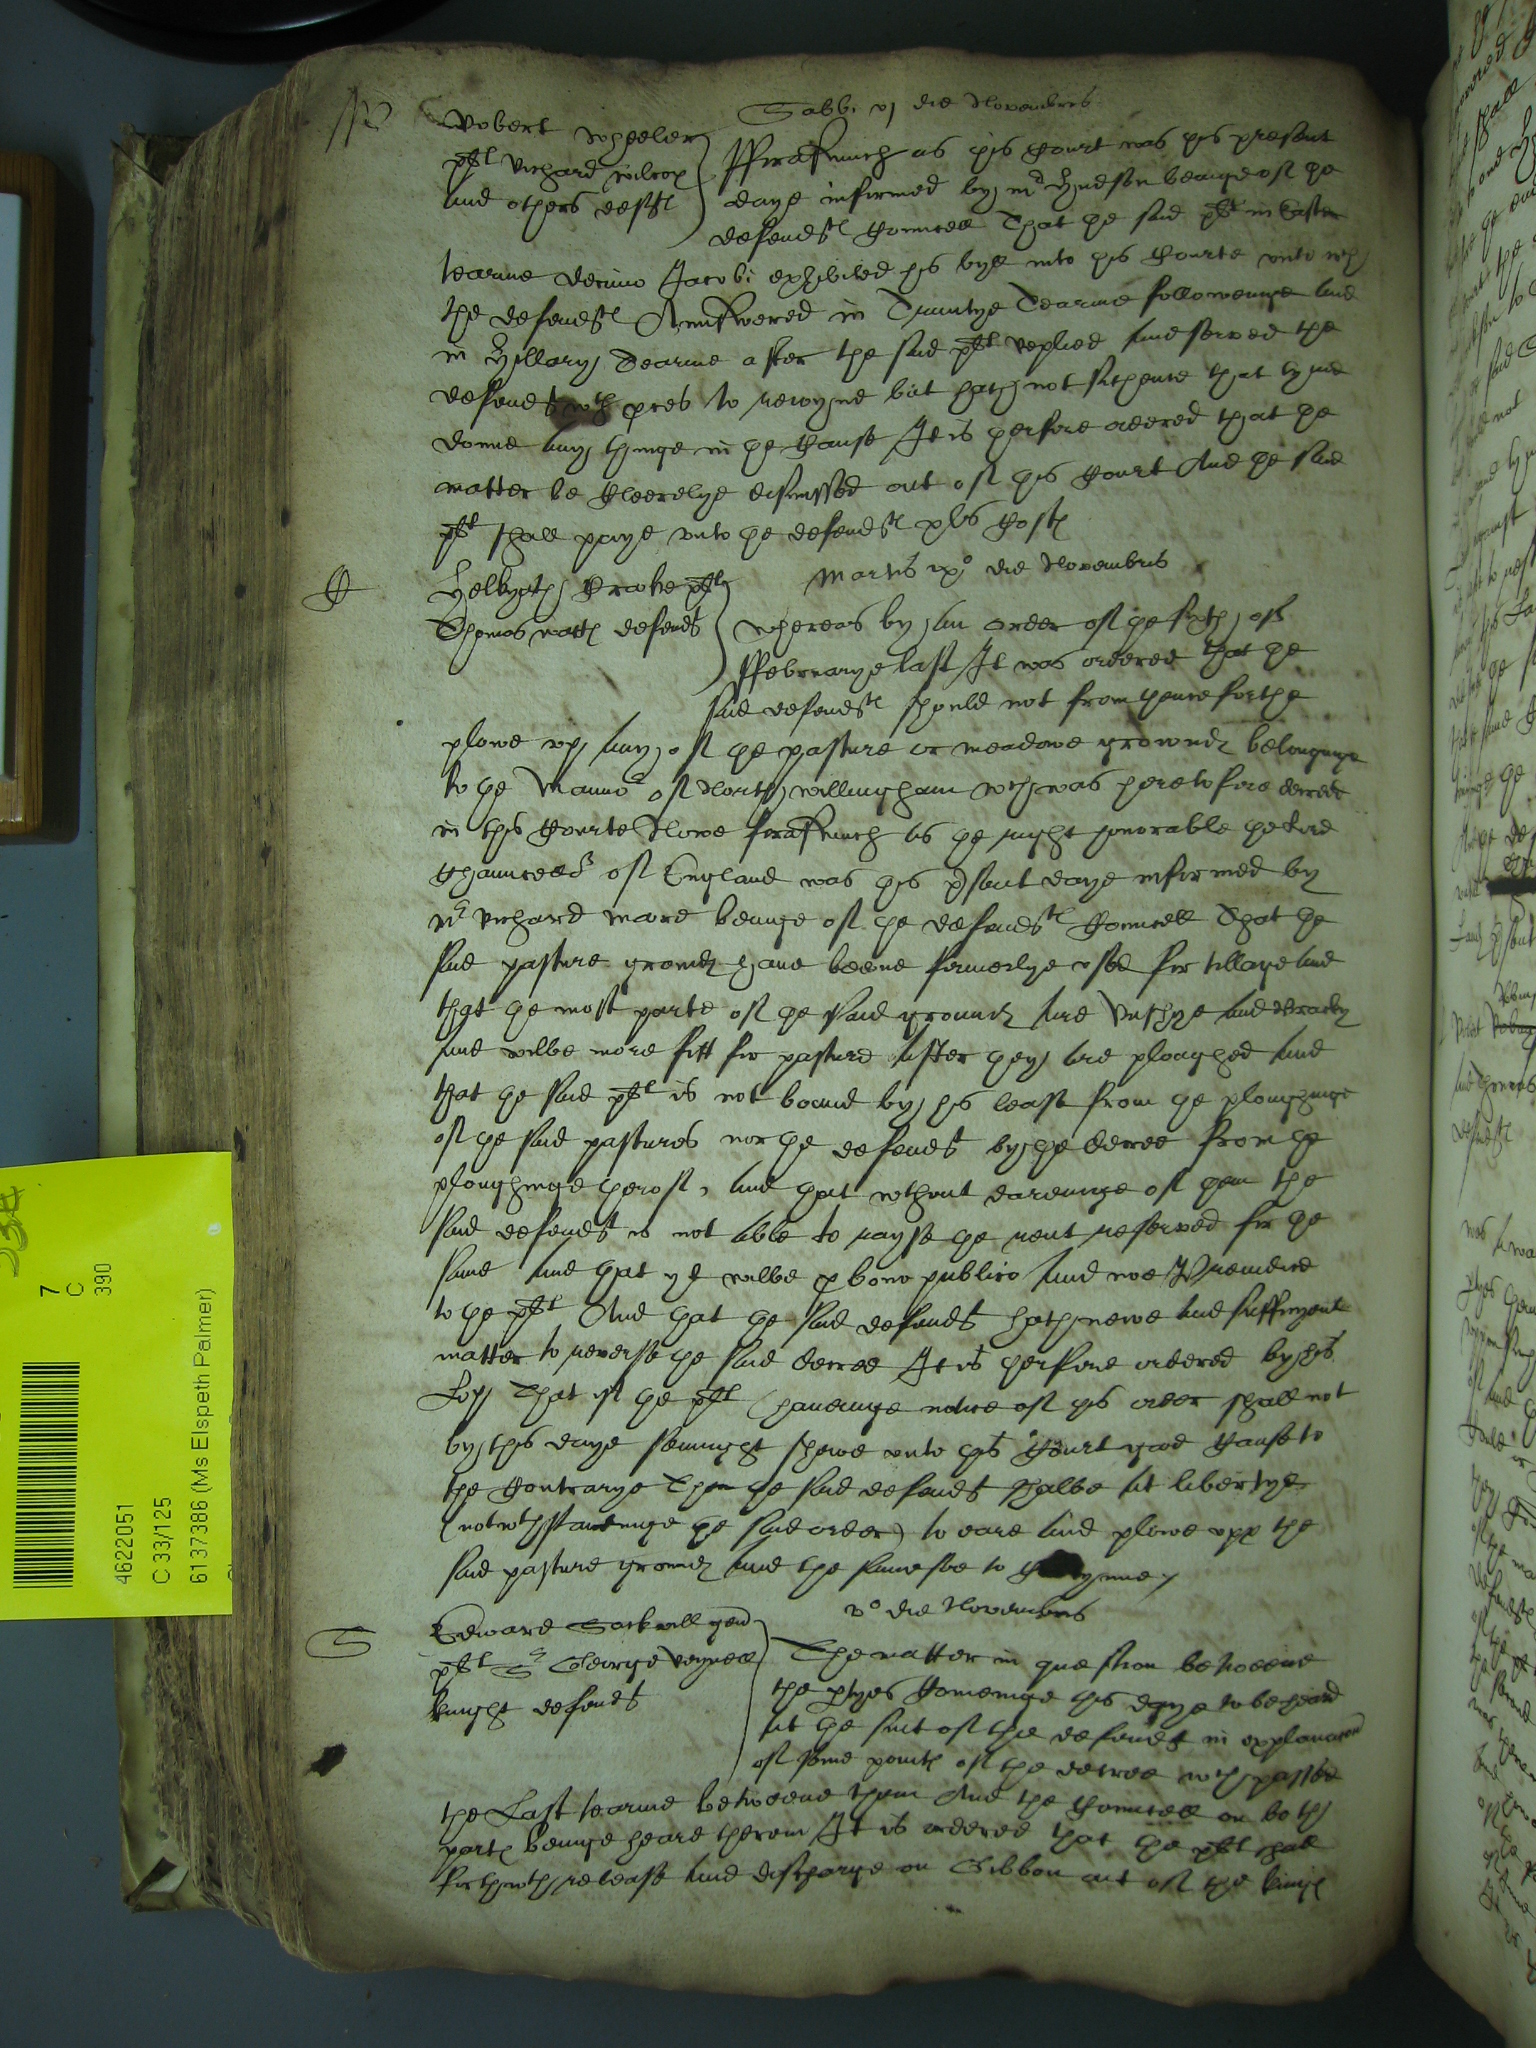 W
Sabbi vj die Novembris
Robert Wheeler
plt Richard Wilcox
and others deftes
fforasmuch as this Court was this present
daye informed by mr Hudson beinge of the
defendtes Councell That the said plt in Easter
tearme decimo Jacobi exhibited his byll into this Courte unto wch
the defendtes Answered in Trinitye Tearme followeinge and
in Hillary Tearme after the said plt replied and served the
defendtes wth proces to rejoyne but hath not sithence that tyme
donne any thinge in the Cause It is therfore ordered that the
matter be Cleerelye dismissed out of this Court And the said
plt shall paye unto the defendtes Costes
Martis ixo die Novembris
C
Crooke plt
Thomas Watts defendt
Whereas by an order of the sixth of
ffebruarye last It was ordered that the
said defendt should not from thenceforthe
plowe up any of the pasture or meadowe growndes belonginge
to the Mannor of North Willingham wch was heretofore decreed
in this Courte Nowe forasmuch as the right honorable the Lord
Chauncellor of England was this psent daye informed by
mr Richard Moore beinge of the defendtes Councell That the
said pasture growndes have beene formerlye used for tillage and
that the most parte of the said groundes are Rushye and
and wilbe more fitt for pasture after they are ploughed and
that the said plt is not bound by his lease from the ploughinge
of the said pastures nor the defendt by the decree from the
ploughinge therof, and that without eareinge of them the
said defendt is not able to rayse the rent reserved for the
same And that yt wilbe p bono publico And noe Prejudice
to the plt And that the said defendt hath newe and suffycyent
matter to reverse the said decree It is therfore ordered by his
Lop That yf the plt (haveinge notice of this order shall not
by this daye sennight shewe unto this Court good Cause to
the Contrarye Then the said defendt shalbe at libertye
(notwthstandinge the said order) to eare and plowe upp the
said pasture growndes and the same soe to
vo die Novembris
S
Edward Sackvill gen
plt Sr George Reynell
knight defendt
The matter in question betweene
the ptyes Comeinge this daye to be heard
at the suit of the defendt in explanacon
of some pointes of the decree wch passed
the Last tearme betweene them And the Councell on both
partes beinge heard therein It is ordered that the plt shall
forthwth release and discharge on Gibbon out of the kinges
7
C
390
4622051
C 33/125
6137386 (Ms Elspeth Palmer)